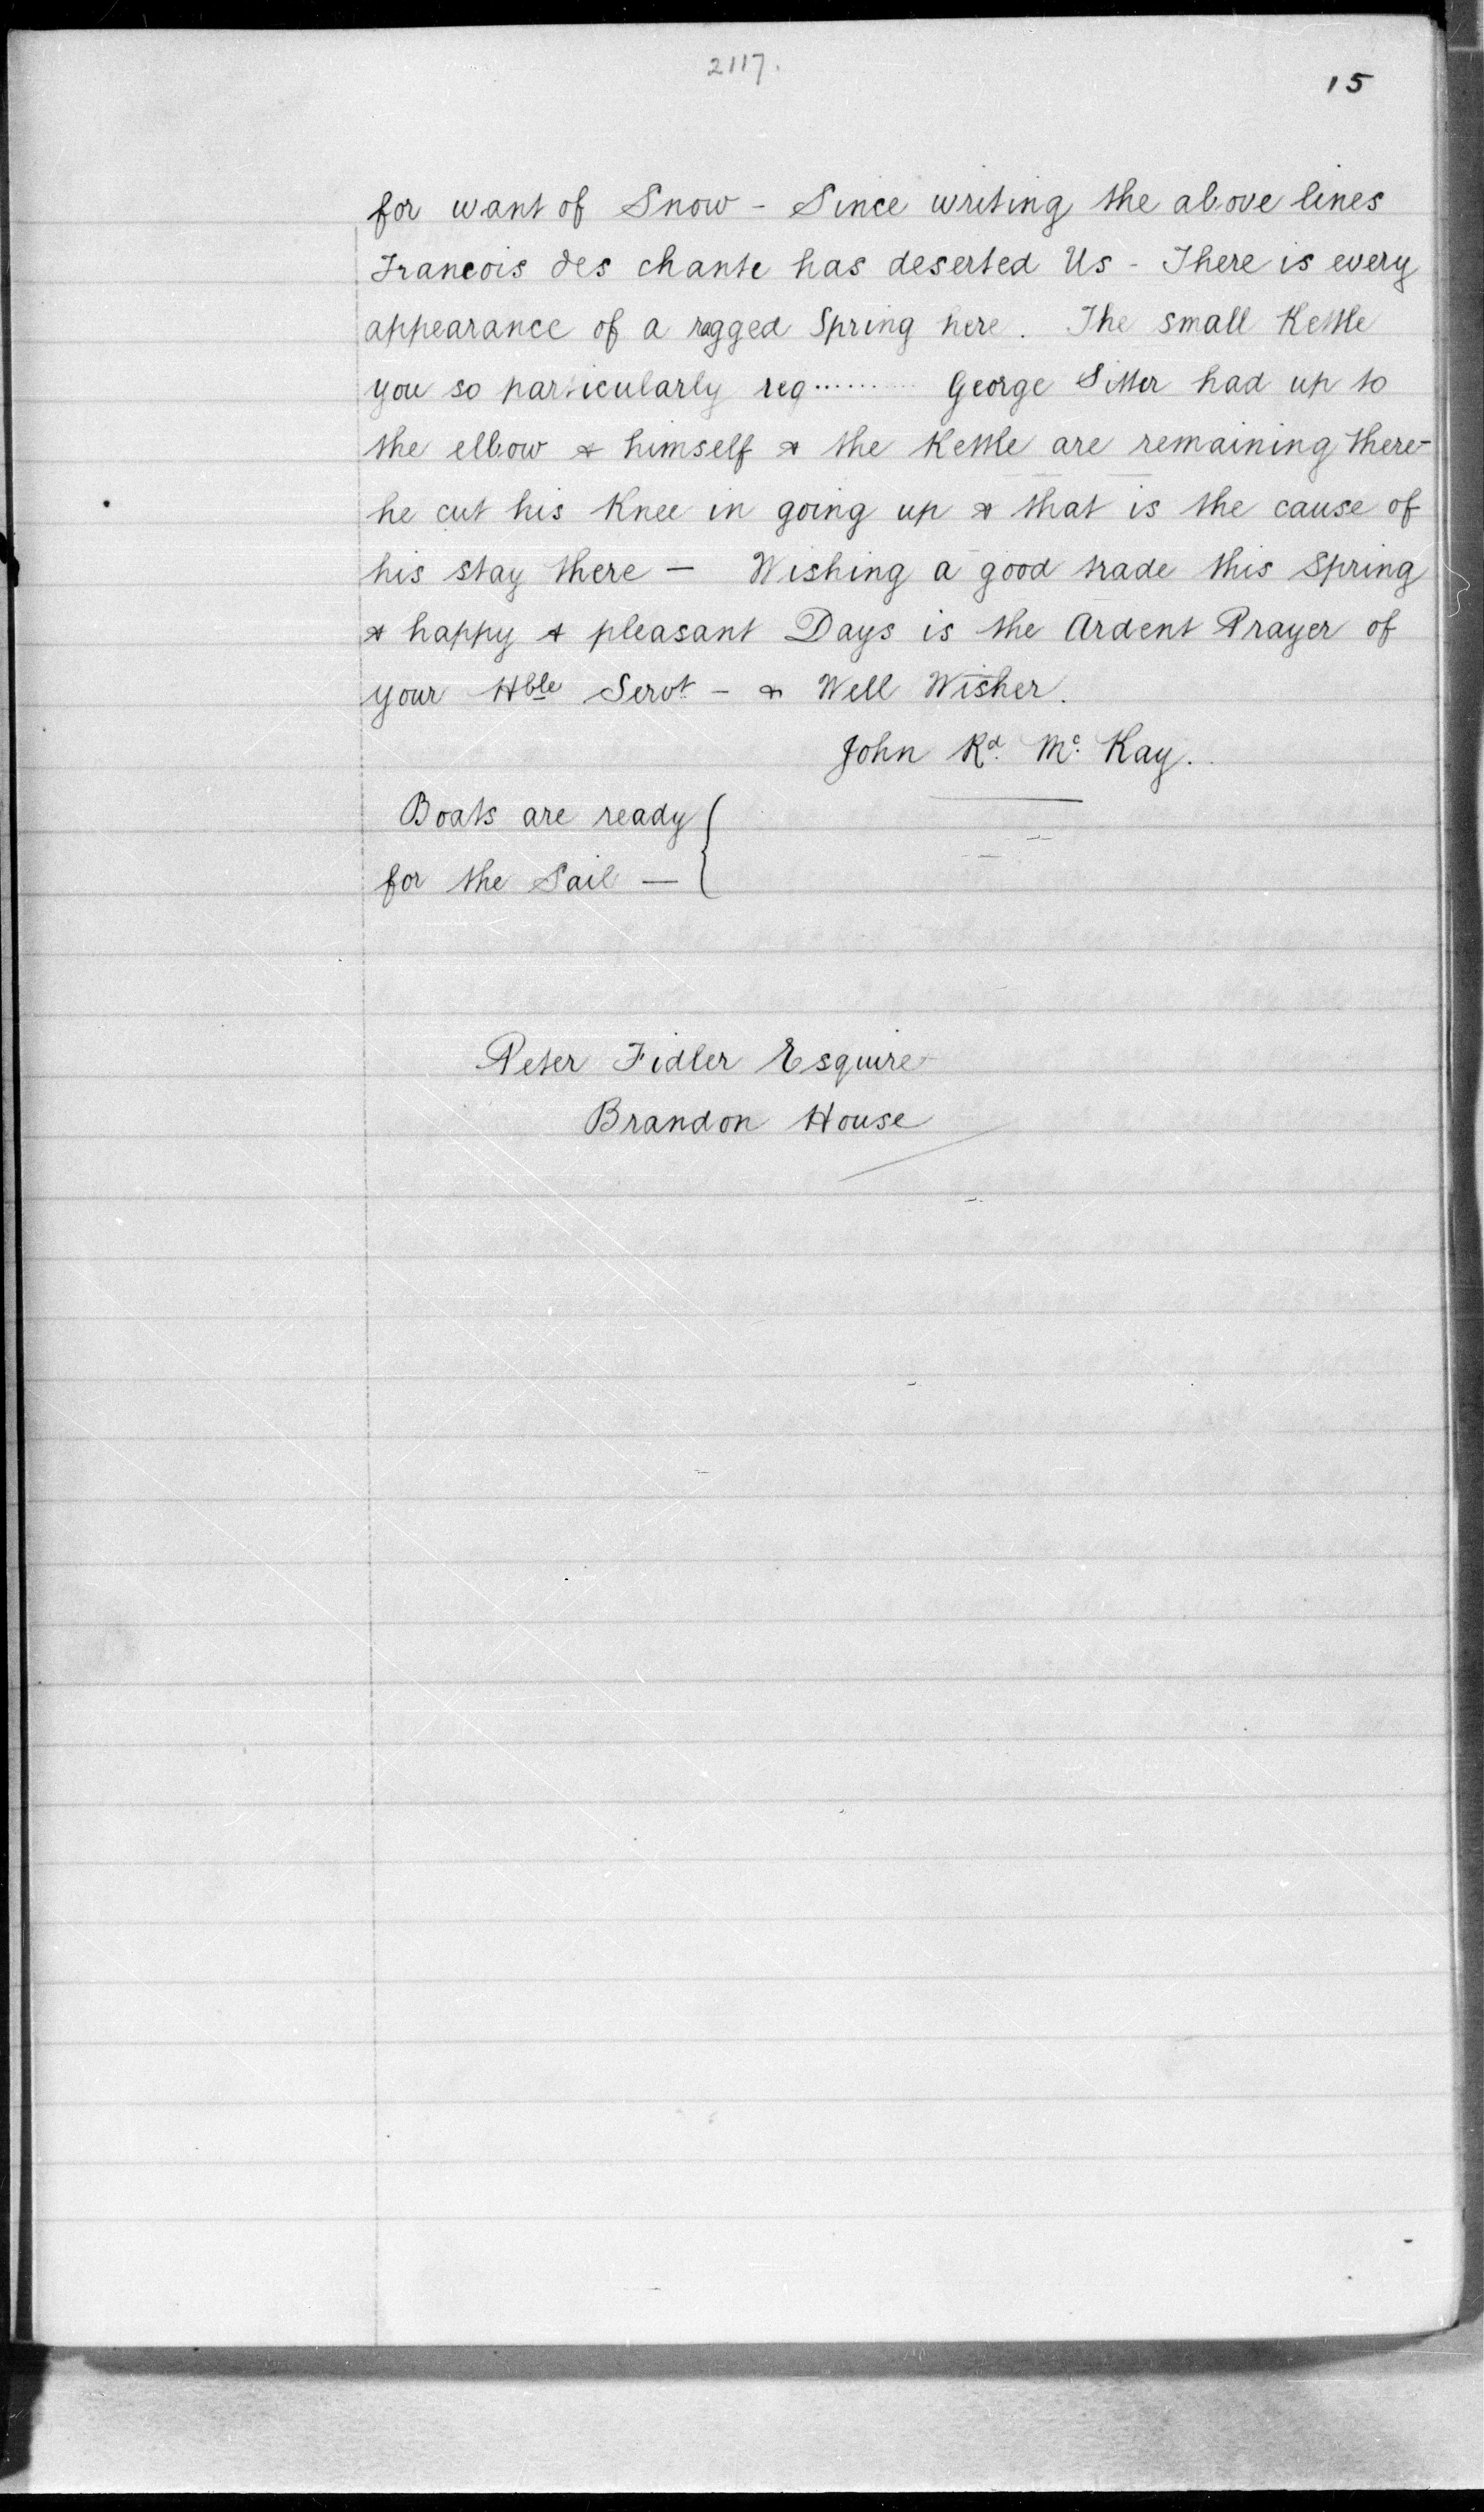 2117.
15
for want of Snow - Since writing the above lines
Francois des chante has deserted Us - There is every
appearance of a ragged Spring here. The small Kettle
you so particularly req......... George Sitter had up to
the elbow & himself & the Kettle are remaining there-
he cut his Knee in going up & that is the cause of
his stay there — Wishing a good trade this Spring
& happy & pleasant Days is the Ardent Prayer of
your Hble Servt - & Well Wisher.
John Rd. Mc. Kay.
Boats are ready
for the Sail —
Peter Fidler Esquire
Brandon House